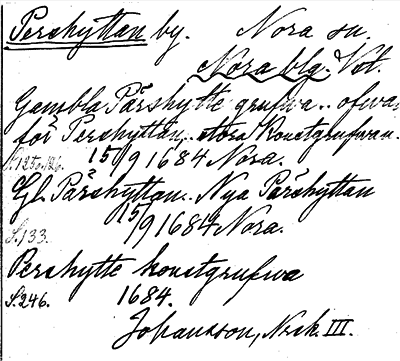 Pershyttan by. Nora sn.
Nora blg. Vstl.
Gambla Pärshytte grufwa.. ofwan
för Pershyttan,. stora Konstgrufwan.
S. 125o.126. 15/9 1684 Nora.
Gl. Pärshyttan.. Nya Pärshyttan
S.133. 15/9 1684 Nora.
Pershytte konstgrufwa
S.246. 1684.
Johansson, Norsk. III.